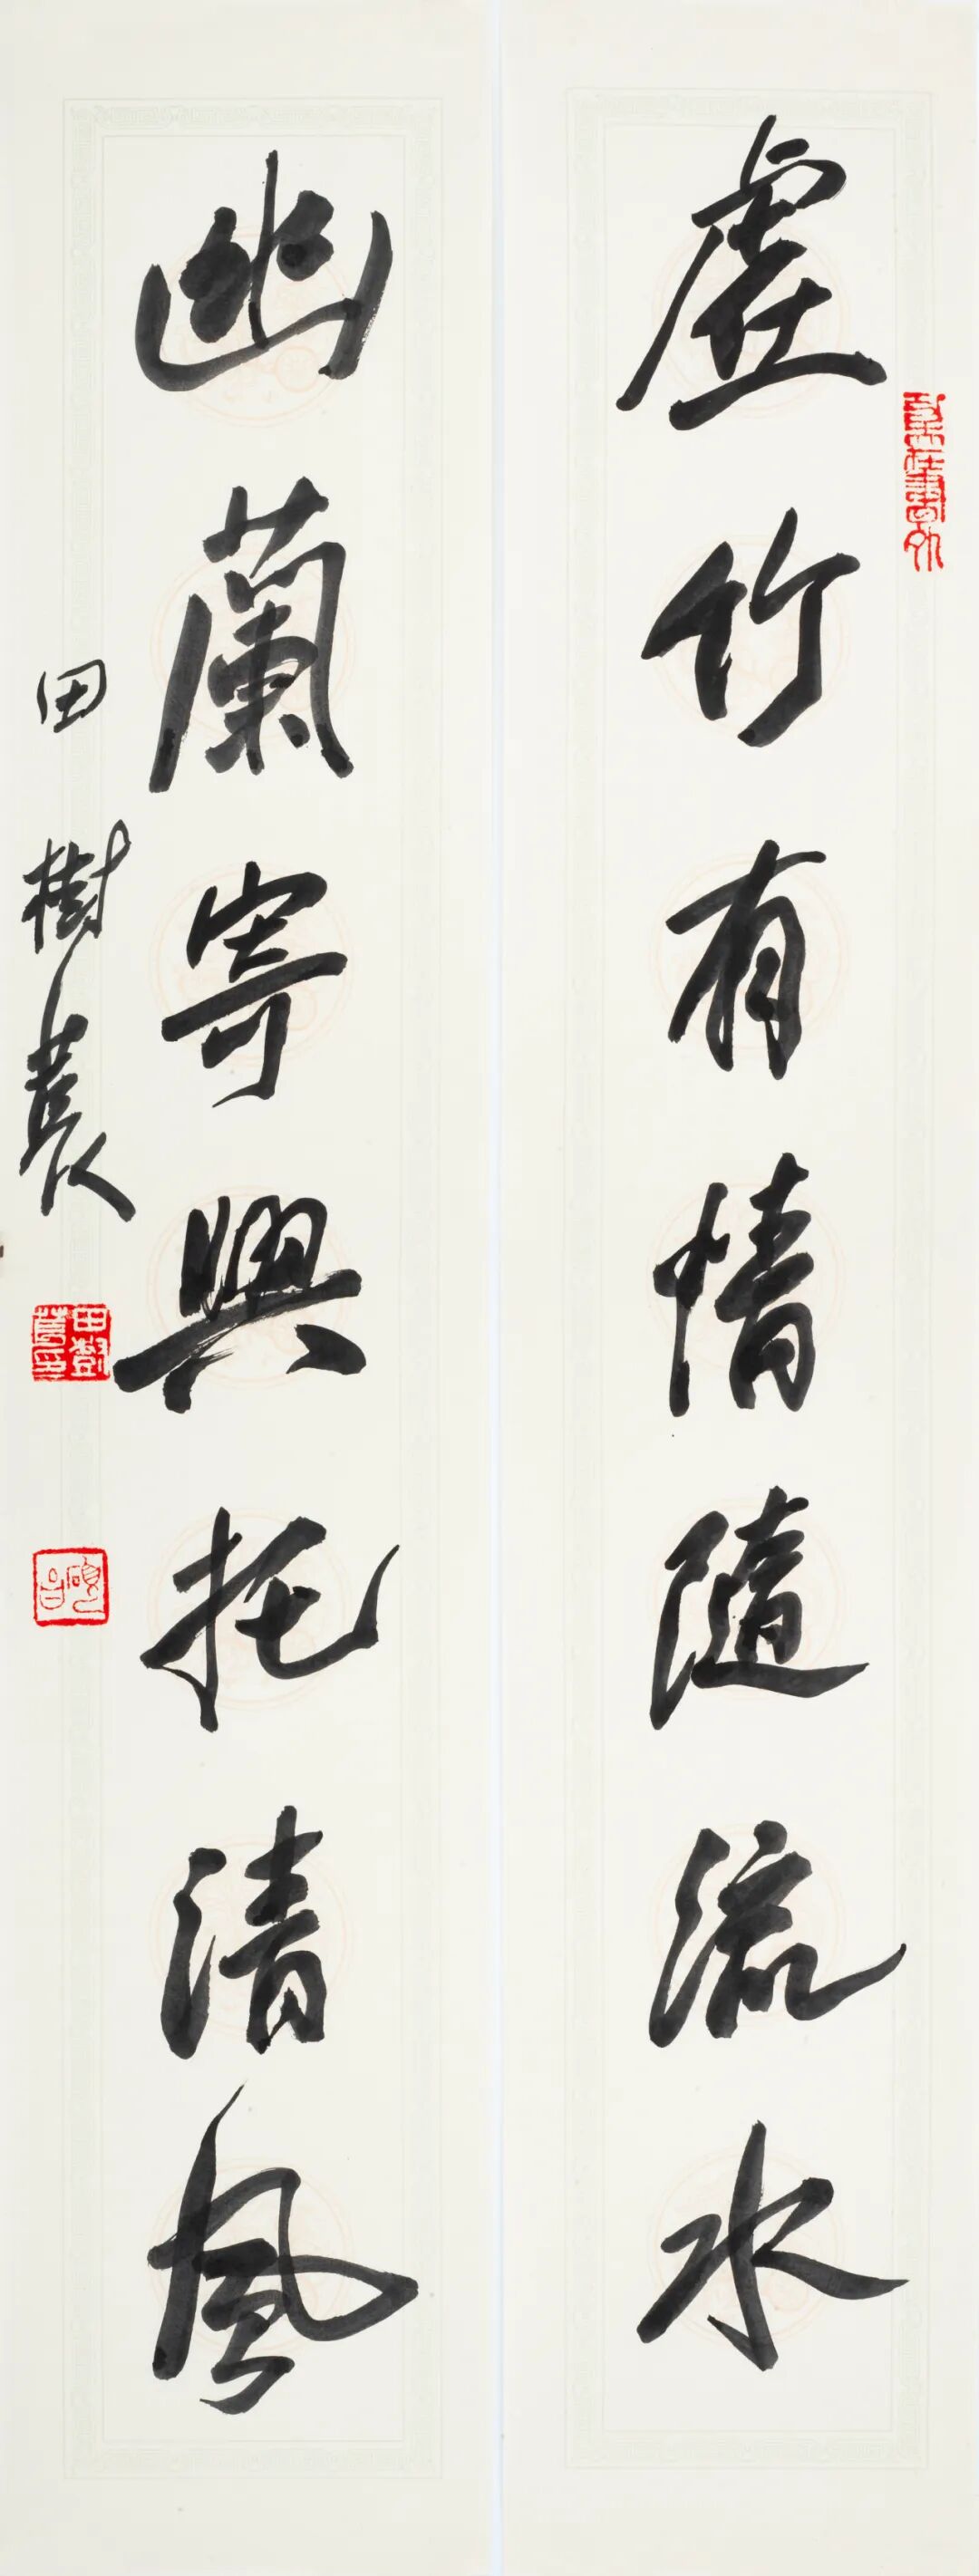 虚竹有情隨流水
幽蘭寄興托清風
田樹萇